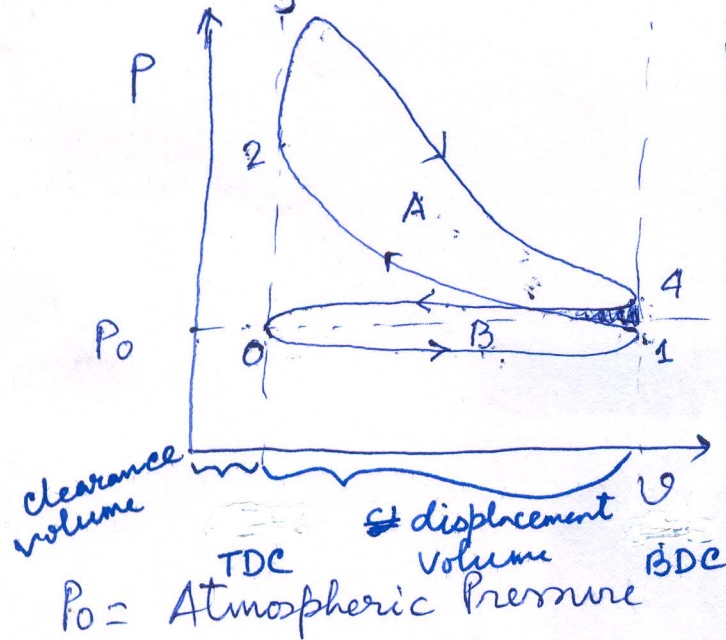 3
P
2
A
4
P₀
B
0
1
clearance
volume
v
displacement
volume
TDC
BDC
P₀ = Atmospheric Pressure